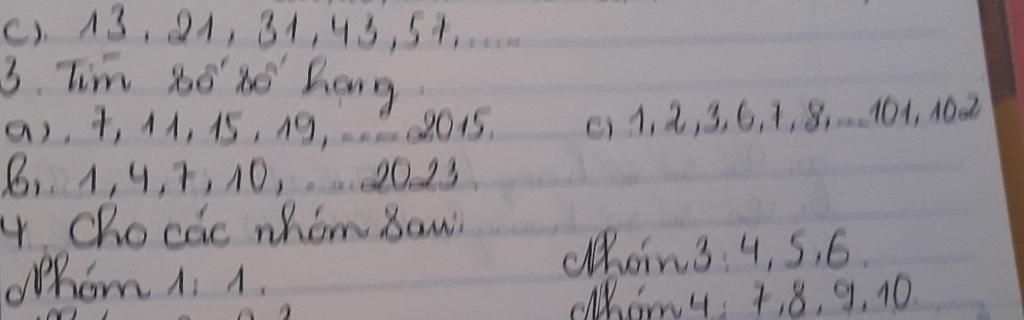 c). 13, 21, 31, 43, 57,.....
3. Tìm số số hạng.
a). 7, 11, 15, 19, .....2015.
c) 1, 2, 3, 6, 7, 8, ...101, 102
b). 1, 4, 7, 10, .....2023.
4. Cho các nhóm sau:
Nhóm 1: 1.
Nhóm 3: 4, 5, 6.
Nhóm 4: 7, 8, 9, 10.